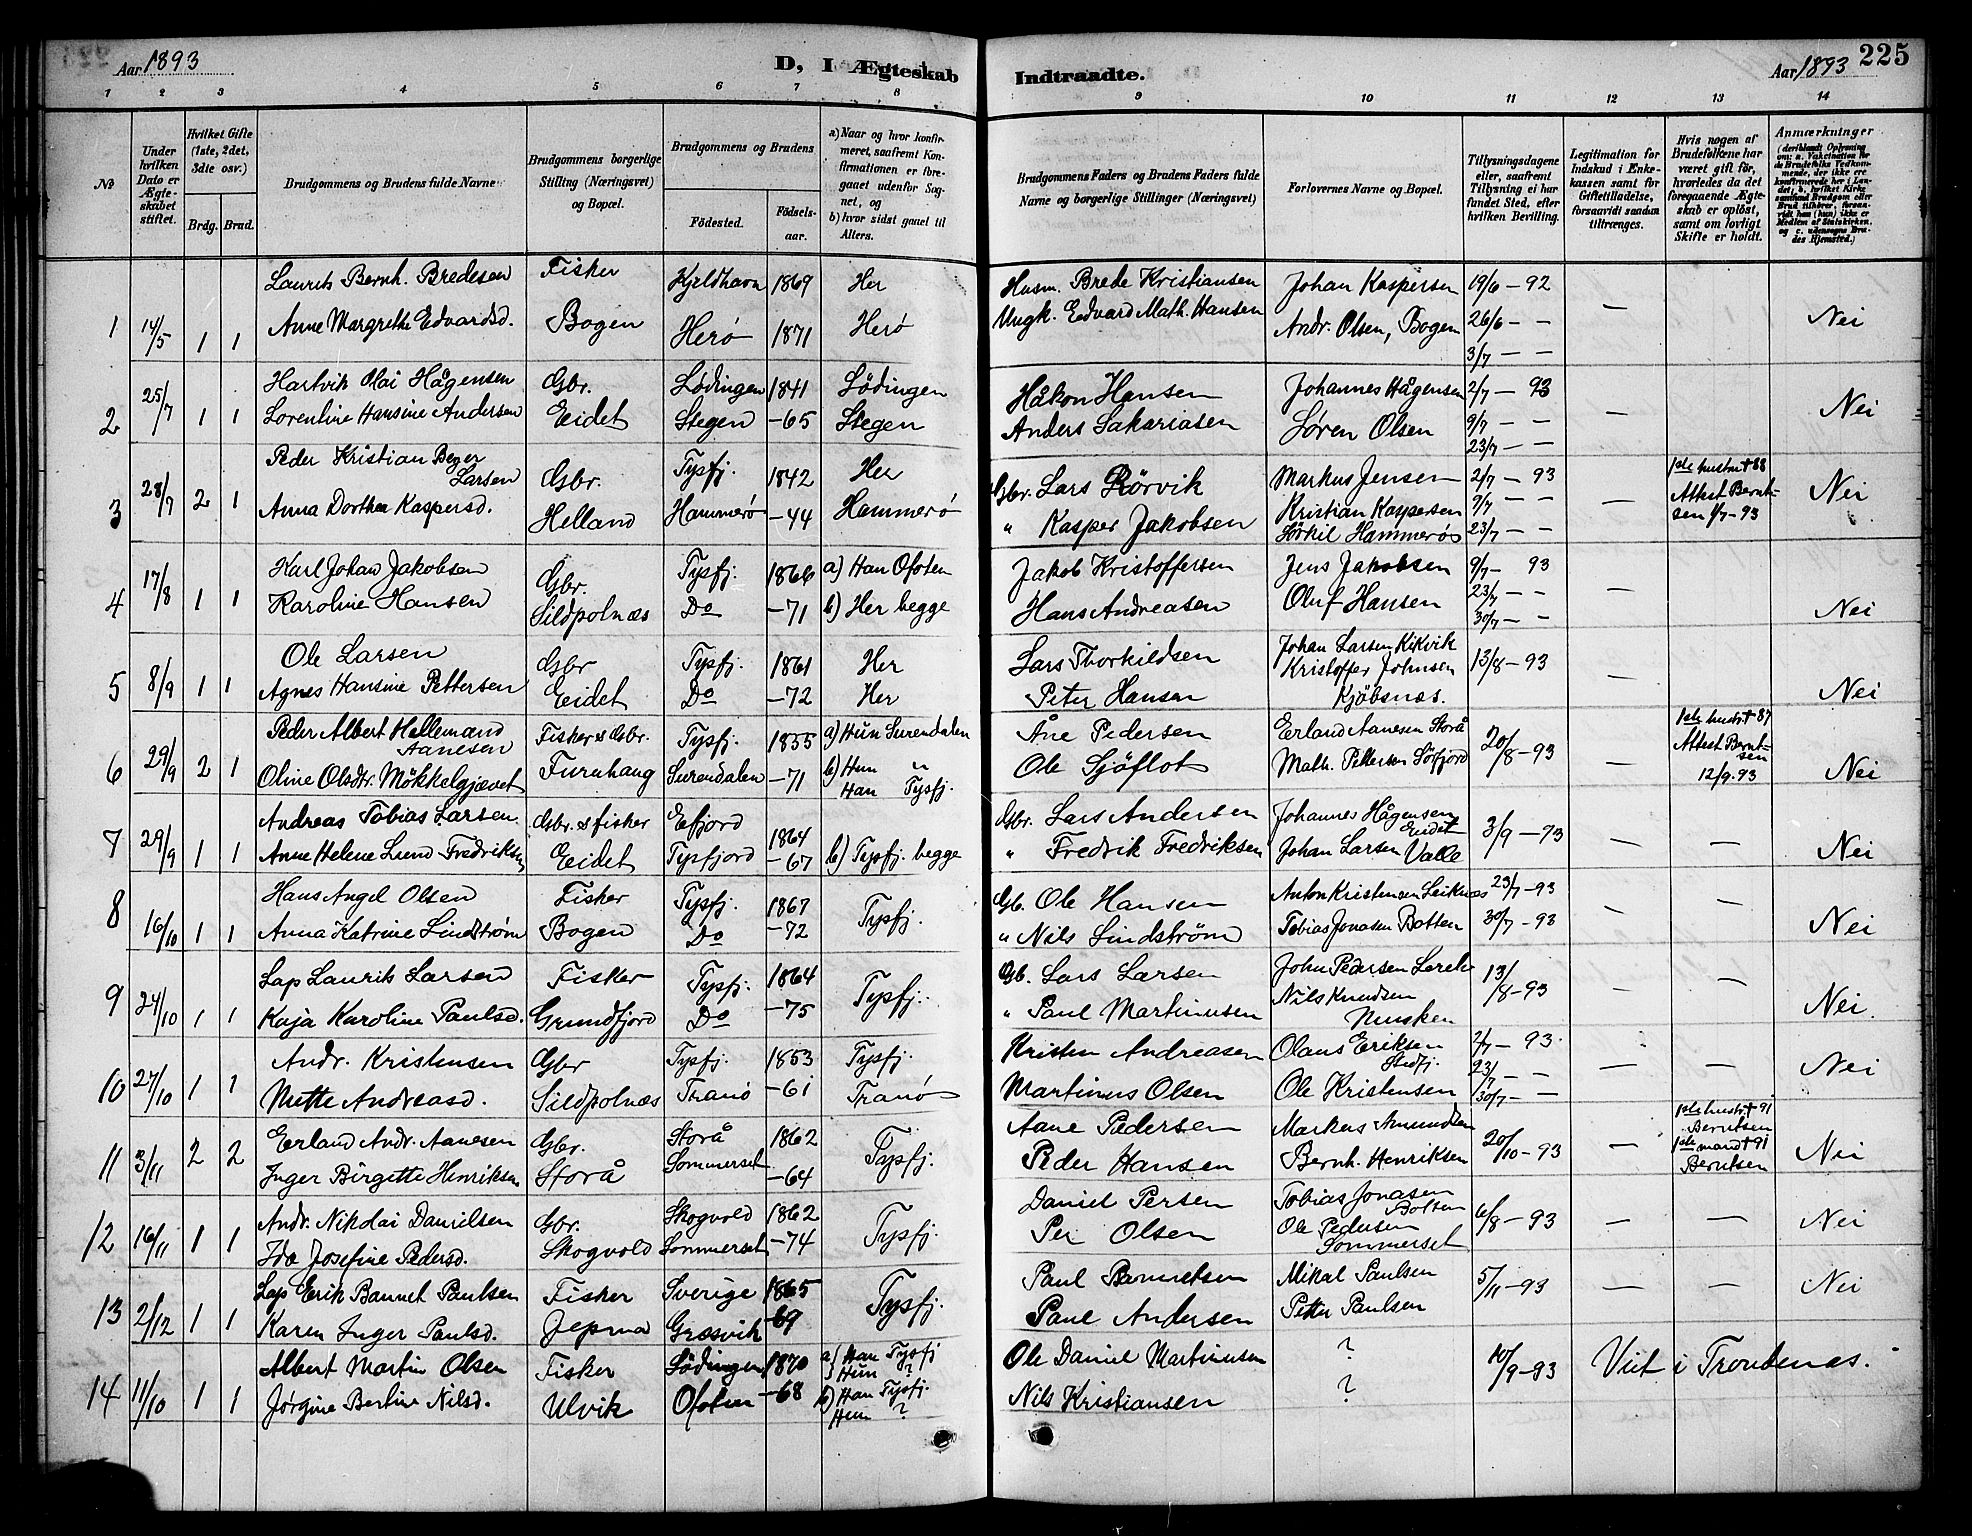 Aar 1893
D, I Ægteskab Indtraadte.
Aar 1893 225
1 2 3 4 5 6 7 8 9 10 11 12 13 14
№
Under hvilken Dato er Ægteskabet stiftet.
Hvilket Gifte (1ste, 2det, 3dte osv.)
Brdg. Brud.
Brudgommens og Brudens fulde Navne.
Brudgommens borgerlige Stilling (Næringsvei) og Bopæl.
Brudgommens og Brudens
Fødested. Fødselsaar.
a) Naar og hvor konfirmeret, saafremt Konfirmationen er foregaaet udenfor Sognet, og
b) hvor sidst gaaet til Alters.
Brudgommens Faders og Brudens Faders fulde Navne og borgerlige Stillinger (Næringsvei)
Forlovernes Navne og Bopæl.
Tillysningsdagene eller, saafremt Tillysning ei har fundet Sted, efter hvilken Bevilling.
Legitimation for Indskud i Enkekassen samt for Giftetilladelse, forsaavidt saadan tiltrænges.
Hvis nogen af Brudefolkene har været gift før, hvorledes da det foregaaende Ægteskab er opløst, samt om lovligt Skifte er holdt.
Anmærkninger
1 14/5 1 1
Laurits Bernh. Bredesen Fisker Kjeldhavn 1869 Her Husm. Brede Kristiansen Johan Kaspersen 19/6 – 92
Anne Margrethe Edvardsd. Bogen Herø 1871 Herø Ungk. Edvard Math. Hansen Andr. Olsen, Bogen 26/6 – – — Nei
3/7 – –
2 25/7 1 1
Hartvik Olai Hågensen Gbr. Lødingen 1841 Lödingen Håkon Hansen Johannes Hågensen 2/7 – 93
Lorentine Hansine Andersen Eidet Stegen –65 Stegen Anders Sakariasen Søren Olsen 9/7 – – — Nei
23/7 – –
3 28/7 2 1
Peder Kristian Beyer Larsen Gbr. Tysfj. 1842 Her Gbr. Lars Rörvik Markus Jensen 2/7 – 93 1ste hustru † 88
Anna Dorthea Kaspersd. Helland Hammerø –44 Hammerö " Kasper Jakobsen Kristian Kaspersen 9/7 – – — Attest Berntsen 1/7 – 93 Nei
Sörkil Hammerø 23/7 – –
4 17/8 1 1
Karl Johan Jakobsen Gbr. Tysfj. 1866 a) Han Ofoten Jakob Kristoffersen Jens Jakobsen 9/7 – 93
Karoline Hansen Sildpolnæs Do –71 b) Her begge Hans Andreasen Oluf Hansen 23/7 – – — Nei
30/7 – –
5 8/9 1 1
Ole Larsen Gbr Tysfj. 1861 Her Lars Thorkildsen Johan Larsen Kikvik 13/8 – 93
Agnes Hansine Pettersen Eidet Do –72 Her Peter Hansen Kristoffer Johnsen Kjöbsnæs. — Nei
6 29/9 2 1
Peder Albert Hellemand Aanesen Fisker & Gbr. Tysfj. 1855 a) Hun Surendalen Åne Pedersen Erland Aanesen Storå 20/8 – 93 1ste hustr † 87
Oline Olsdtr. Mökkelgjævet Furuhaug Surendalen –71 b) Hun " Han Tysfj. Ole Sjöflot Math. Pettersen Sörfjord — Attest Berntsen 12/9 93 Nei
7 29/9 1 1
Andreas Tobias Larsen Gbr. & fisker Eefjord 1864 Gbr. Lars Andersen Johannes Hågensen Eidet 3/9 – 93
Anne Helene Lund Fredriksen Eidet Tysfjord –67 b) Tysfj. begge " Fredrik Fredriksen Johan Larsen Valle — — Nei
8 16/10 1 1
Hans Angel Olsen Fisker Tysfj. 1867 Tysfj. Gb. Ole Hansen Anton Kristensen Leiknes 23/7 – 93
Anna Katrine Lindstrøm Bogen Do –72 " Nils Lindström Tobias Jonasen Botten 30/7 – 93 — — Nei
9 24/10 1 1
Lap Laurits Larsen Fisker Tysfj. 1864 Tysfj. Gb. Lars Larsen John Pedersen 13/8 – 93
Kaja Karoline Paulsd. Grundfjord Do –75 " Paul Martinusen Nils Knudsen Musken — — Nei
10 27/10 1 1
Andr. Kristensen Gbr Tysfj. 1853 Tysfj. Kristen Andreasen Olaus Eriksen 2/7 – 93
Mette Andreasd. Sildpolnæs Tranø –61 Tranø Martinus Olsen Ole Kristensen 23/7 – – — — Nei
30/7 – –
11 3/11 2 2
Erland Andr. Aanesen Gbr. Storå 1862 Tysfj. Aane Pedersen Markus Amundsen 20/10 – 93 1ste hustr † 91 Berntsen
Inger Birgitte Henriksen Storå Sommerset –64 Peder Hansen Bernh. Henriksen — 1ste mand † 91 Berntsen Nei
12 16/11 1 1
Andr. Nikolai Danielsen Gbr. Skogvold 1862 Tysfj. Daniel Persen Tobias Jonasen Botten 6/8 – 93
Ida Josefine Pedersd. Skogvold Sommerset –74 Per Olsen Ole Pedersen Sommerset — — Nei
13 2/12 1 1
Lap Erik Bannet Paulsen Fisker Sverige 1865 Tysfj. Paul Bannetsen Mikal Paulsen 5/11 – 93
Karen Inger Paulsd. Jepma Græsvik –69 Paul Andersen Petter Paulsen — — Nei
14 11/10 1 1
Albert Martin Olsen Fisker Lödingen 1870 a) Han Tysfj Hun ? Ole Daniel Martinusen ? 10/9 – 93 Viet i Trondenæs.
Jørgine Bertine Nilsd. Ulvik Ofoten –68 b) Han Tysfj. Hun ? Nils Kristiansen ?